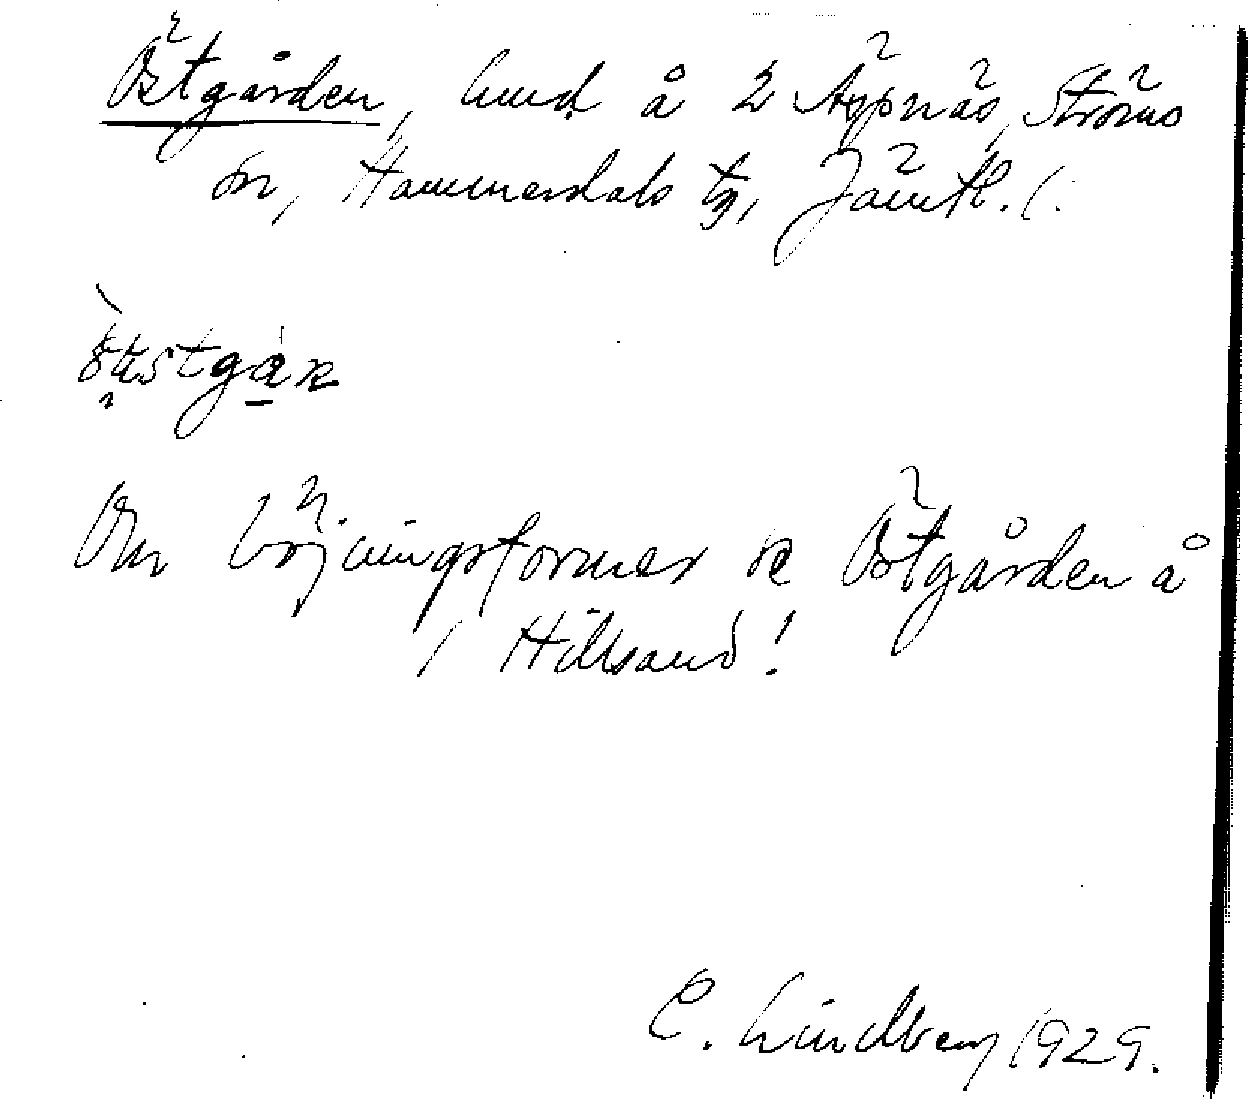 Östgården, hmd å 2 Äspnäs, Ströms
sn, Hammerdals tg, Jämtl. l.
Om böjningsformer se Östgården å
/ Hillsand!
C. Lindberg 1929.